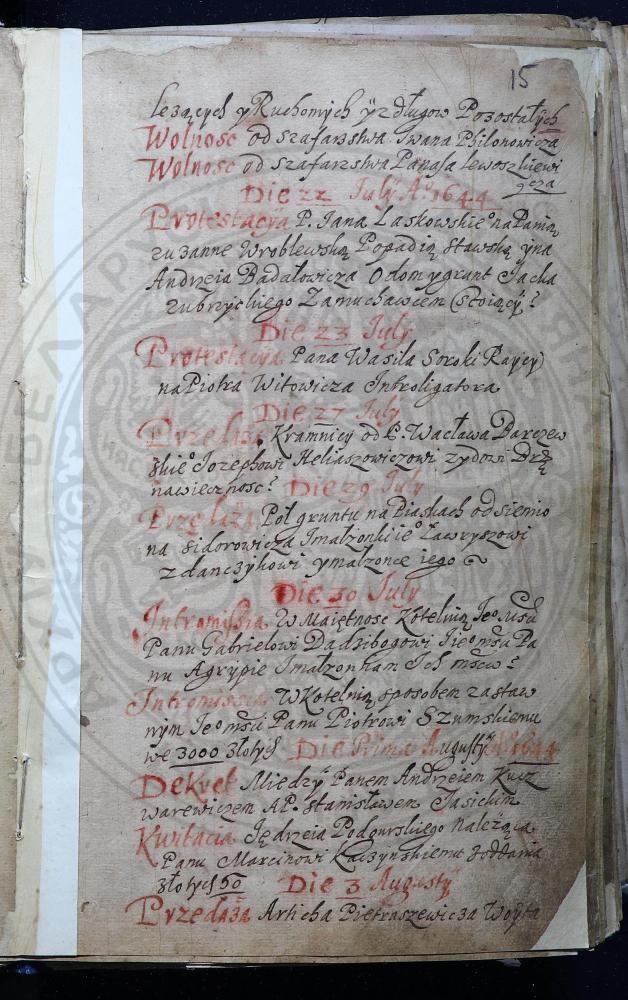 15
leżących y Ruchomych ÿ z długow Pozostałÿch
Wolnosc od szafarstwa Iwana Philonowicza
Wolnosc od szafarstwa Panasa Lewoszkiewi
cza
Die 22 Julÿ Aº 1644
Protestacya P. Jana Laskowskieº na Panią
zuzanne Wroblewską Popadią Stawską ÿ na
Andrzeia Badałowicza O dom y grunt Jacka
zubrzyckiego Zamuchawcem Stoiącÿ
Die 23 July
Protestacya Pana Wasila Soroki Raycy
na Piotra Witowicza Introligatora
Die 27 July
Przedaża Kramnicy od P. Wacława Barczew
skieº Jozephowi Heliaszowiczowi zydow
na wiecznosc Die 29 July
Przedaża Poł gruntu na Piaskach od siemio
na Sidorowicza J małżonki ieº Ławryszowi
zdanczykowi y małżonce iego
Die 30 July
Intromissia W Maiętnosc Kotelnią Jeº Msći
Panu Gabrielowi Dadzibogowi J ieº msći Pa
nu Agrypie J małżonkam Ich mściow
Intromissia W Kotelnią sposobem zastaw
nym Jeº msći Panu Piotrowi Szumskiemu
we 3000 złotych Die Prima Augusty Aº 1644
Dekret Miedzÿ Panem Andrzeiem Kucz
warewiczem A P. Stanisławem Jasickim
Kwitacia Jędrzeia Podgurskiego należąca
Panu Marcinowi Kaczynskiemu z oddania
złotych 50 Die 3 Augustÿ
Przedaża Articha Pietraszewicza Woÿta